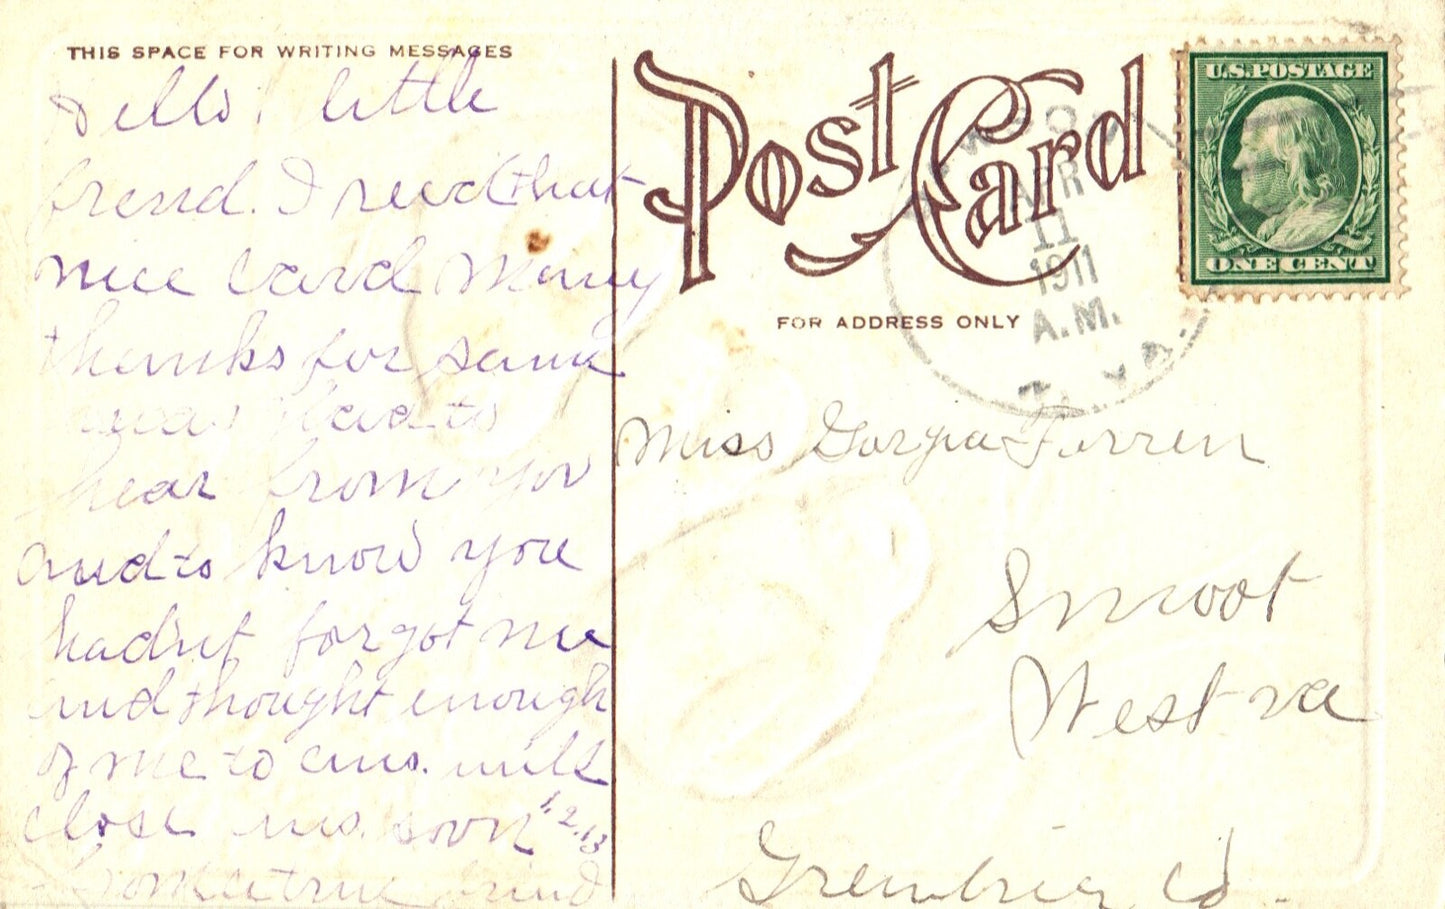 THIS SPACE FOR WRITING MESSAGES
Hello! little
frend. I recd that
nice card Many
thanks for same
was glad to
hear from you
and to know you
hadnt forgot me
and thought enough
of me to ans. will
close ans. soon 1,2,13
From a true frind
Post Card
FOR ADDRESS ONLY
U.S. POSTAGE
ONE CENT
APR
11
1911
A.M.
W. VA.
Miss Gorgia Forren
Smoot
West va
Grenbrier Co.